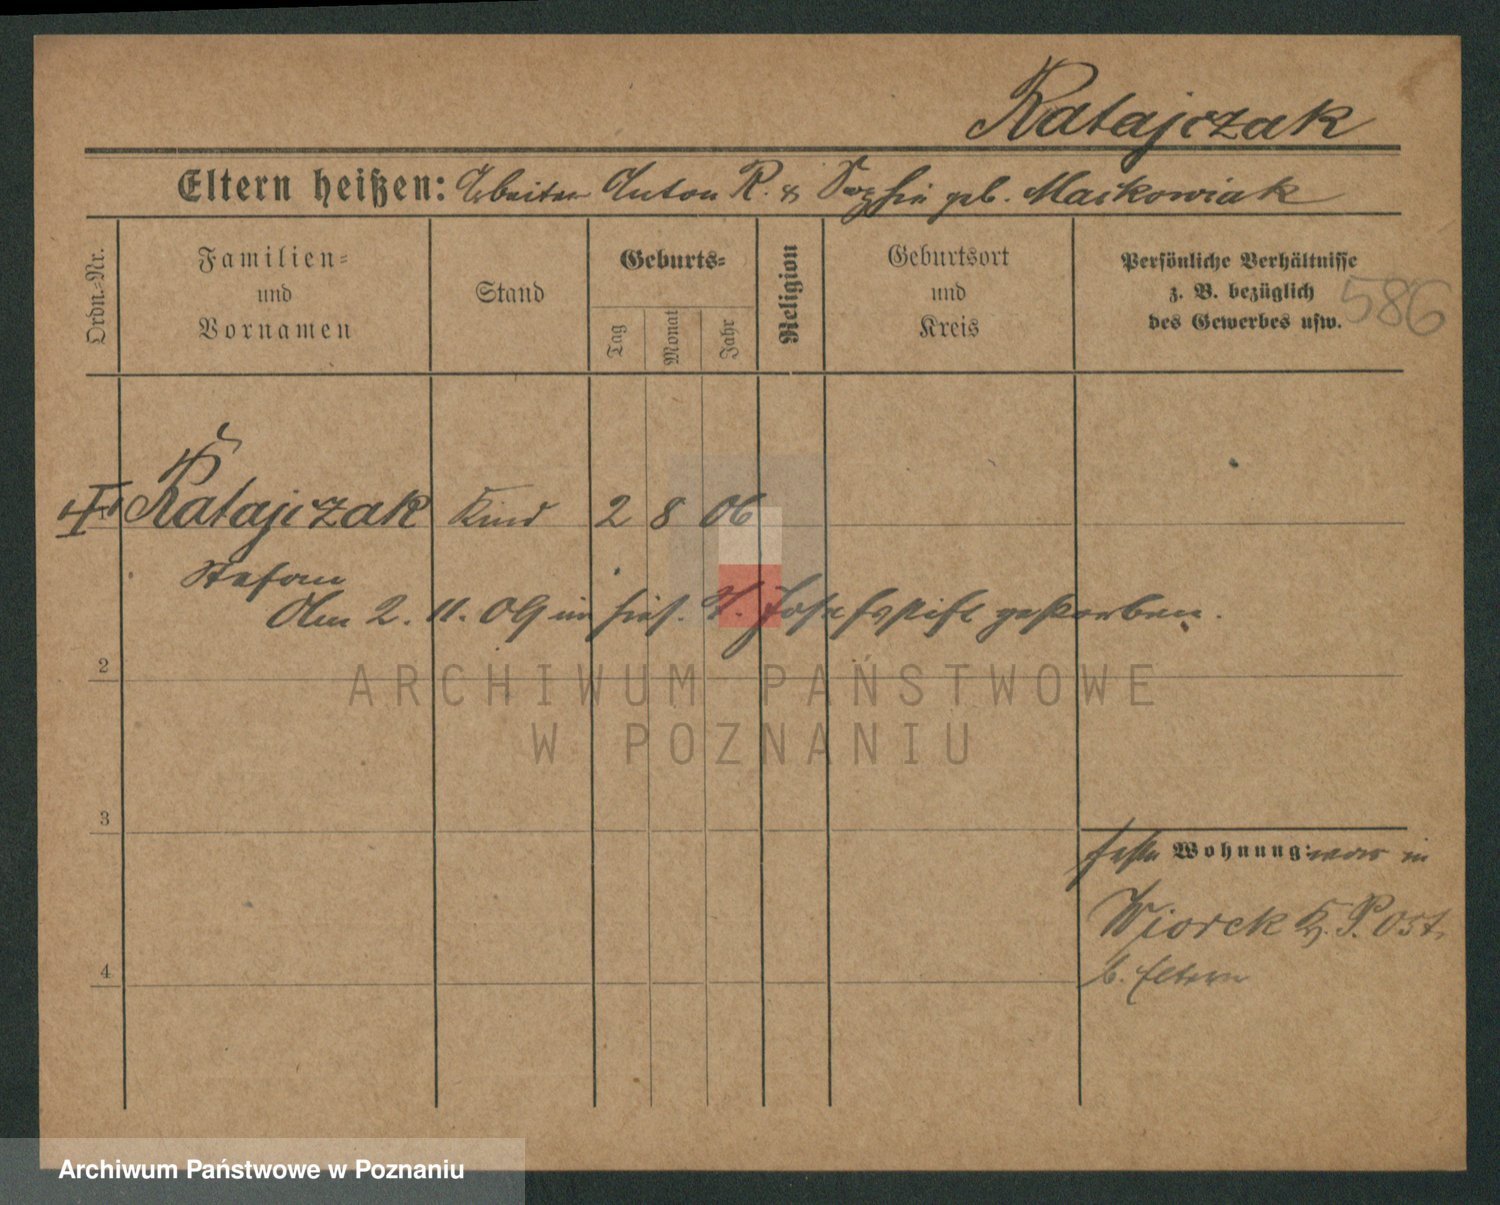 Ratajczak
Eltern heißen: Arbeiter Anton R. & Sophie geb. Maikowiak
Ordn.-Nr.
Familien-
und
Vornamen
Stand
Geburts-
Tag
Monat
Jahr
Religion
Geburtsort
und
Kreis
Persönliche Verhältnisse
z. B. bezüglich
des Gewerbes usw.
586
Ratajczak Kind 2 8 06
Stefan
Am 2. 11. 09 im hies. St. Josefsstift gestorben.
2
ARCHIWUM PAŃSTWOWE
W POZNANIU
3
feste Wohnung: war in
Wiorek K. P. Ost.
4
b. Eltern
Archiwum Państwowe w Poznaniu